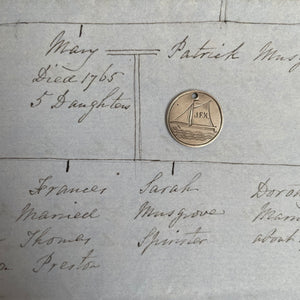 Mary
Died 1765
5 Daughters
Patrick Musg
J.F.X.
Frances
Married
Thomas
Preston
Sarah
Musgrove
Spinster
Doro
Marri
about